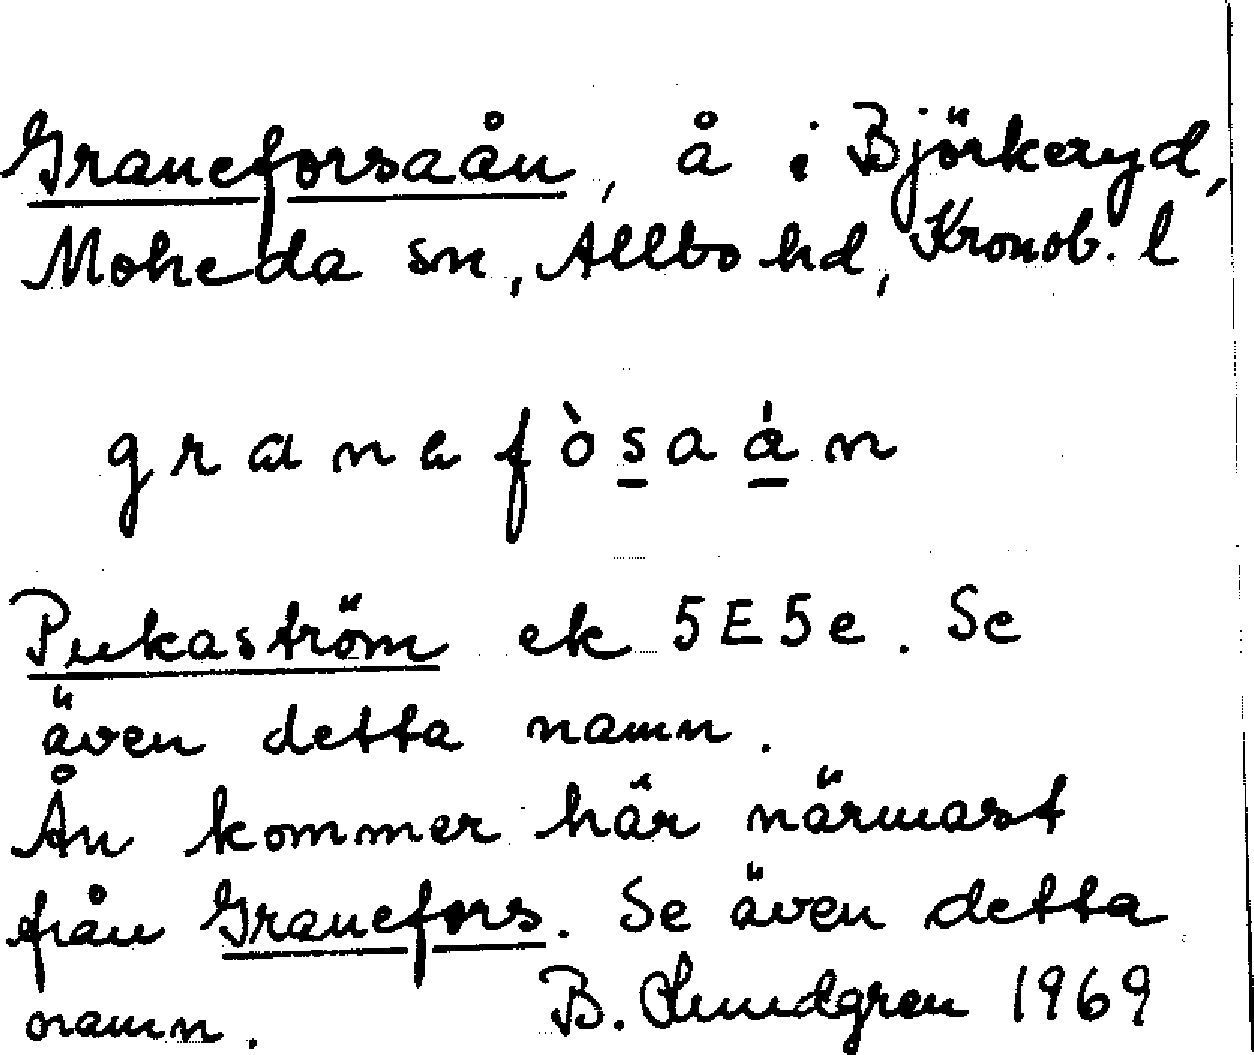 Graneforsaån, å i Björkeryd,
Moheda sn, Allbo hd, Kronob. l
granefòsaán
Pukaström ek 5E5e. Se
även detta namn.
Ån kommer här närmast
från Granefors. Se även detta
namn. B. Lundgren 1969